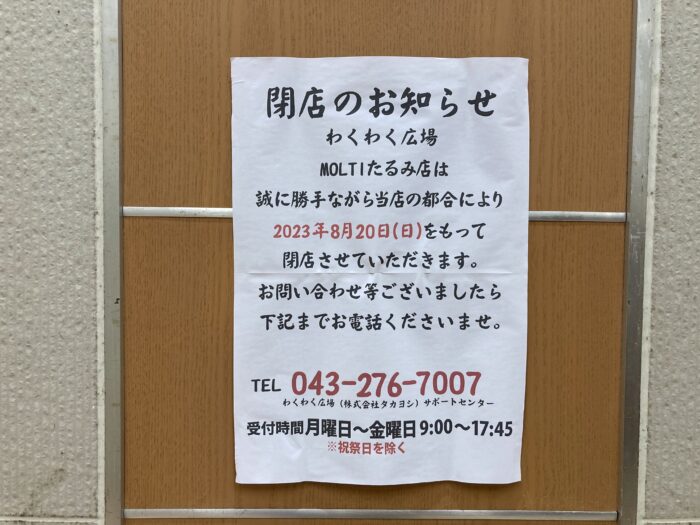 閉店のお知らせ
わくわく広場
MOLTIたるみ店は
誠に勝手ながら当店の都合により
2023年8月20日(日)をもって
閉店させていただきます。
お問い合わせ等ございましたら
下記までお電話くださいませ。
TEL 043-276-7007
わくわく広場（株式会社タカヨシ）サポートセンター
受付時間 月曜日～金曜日 9:00～17:45
※祝祭日を除く